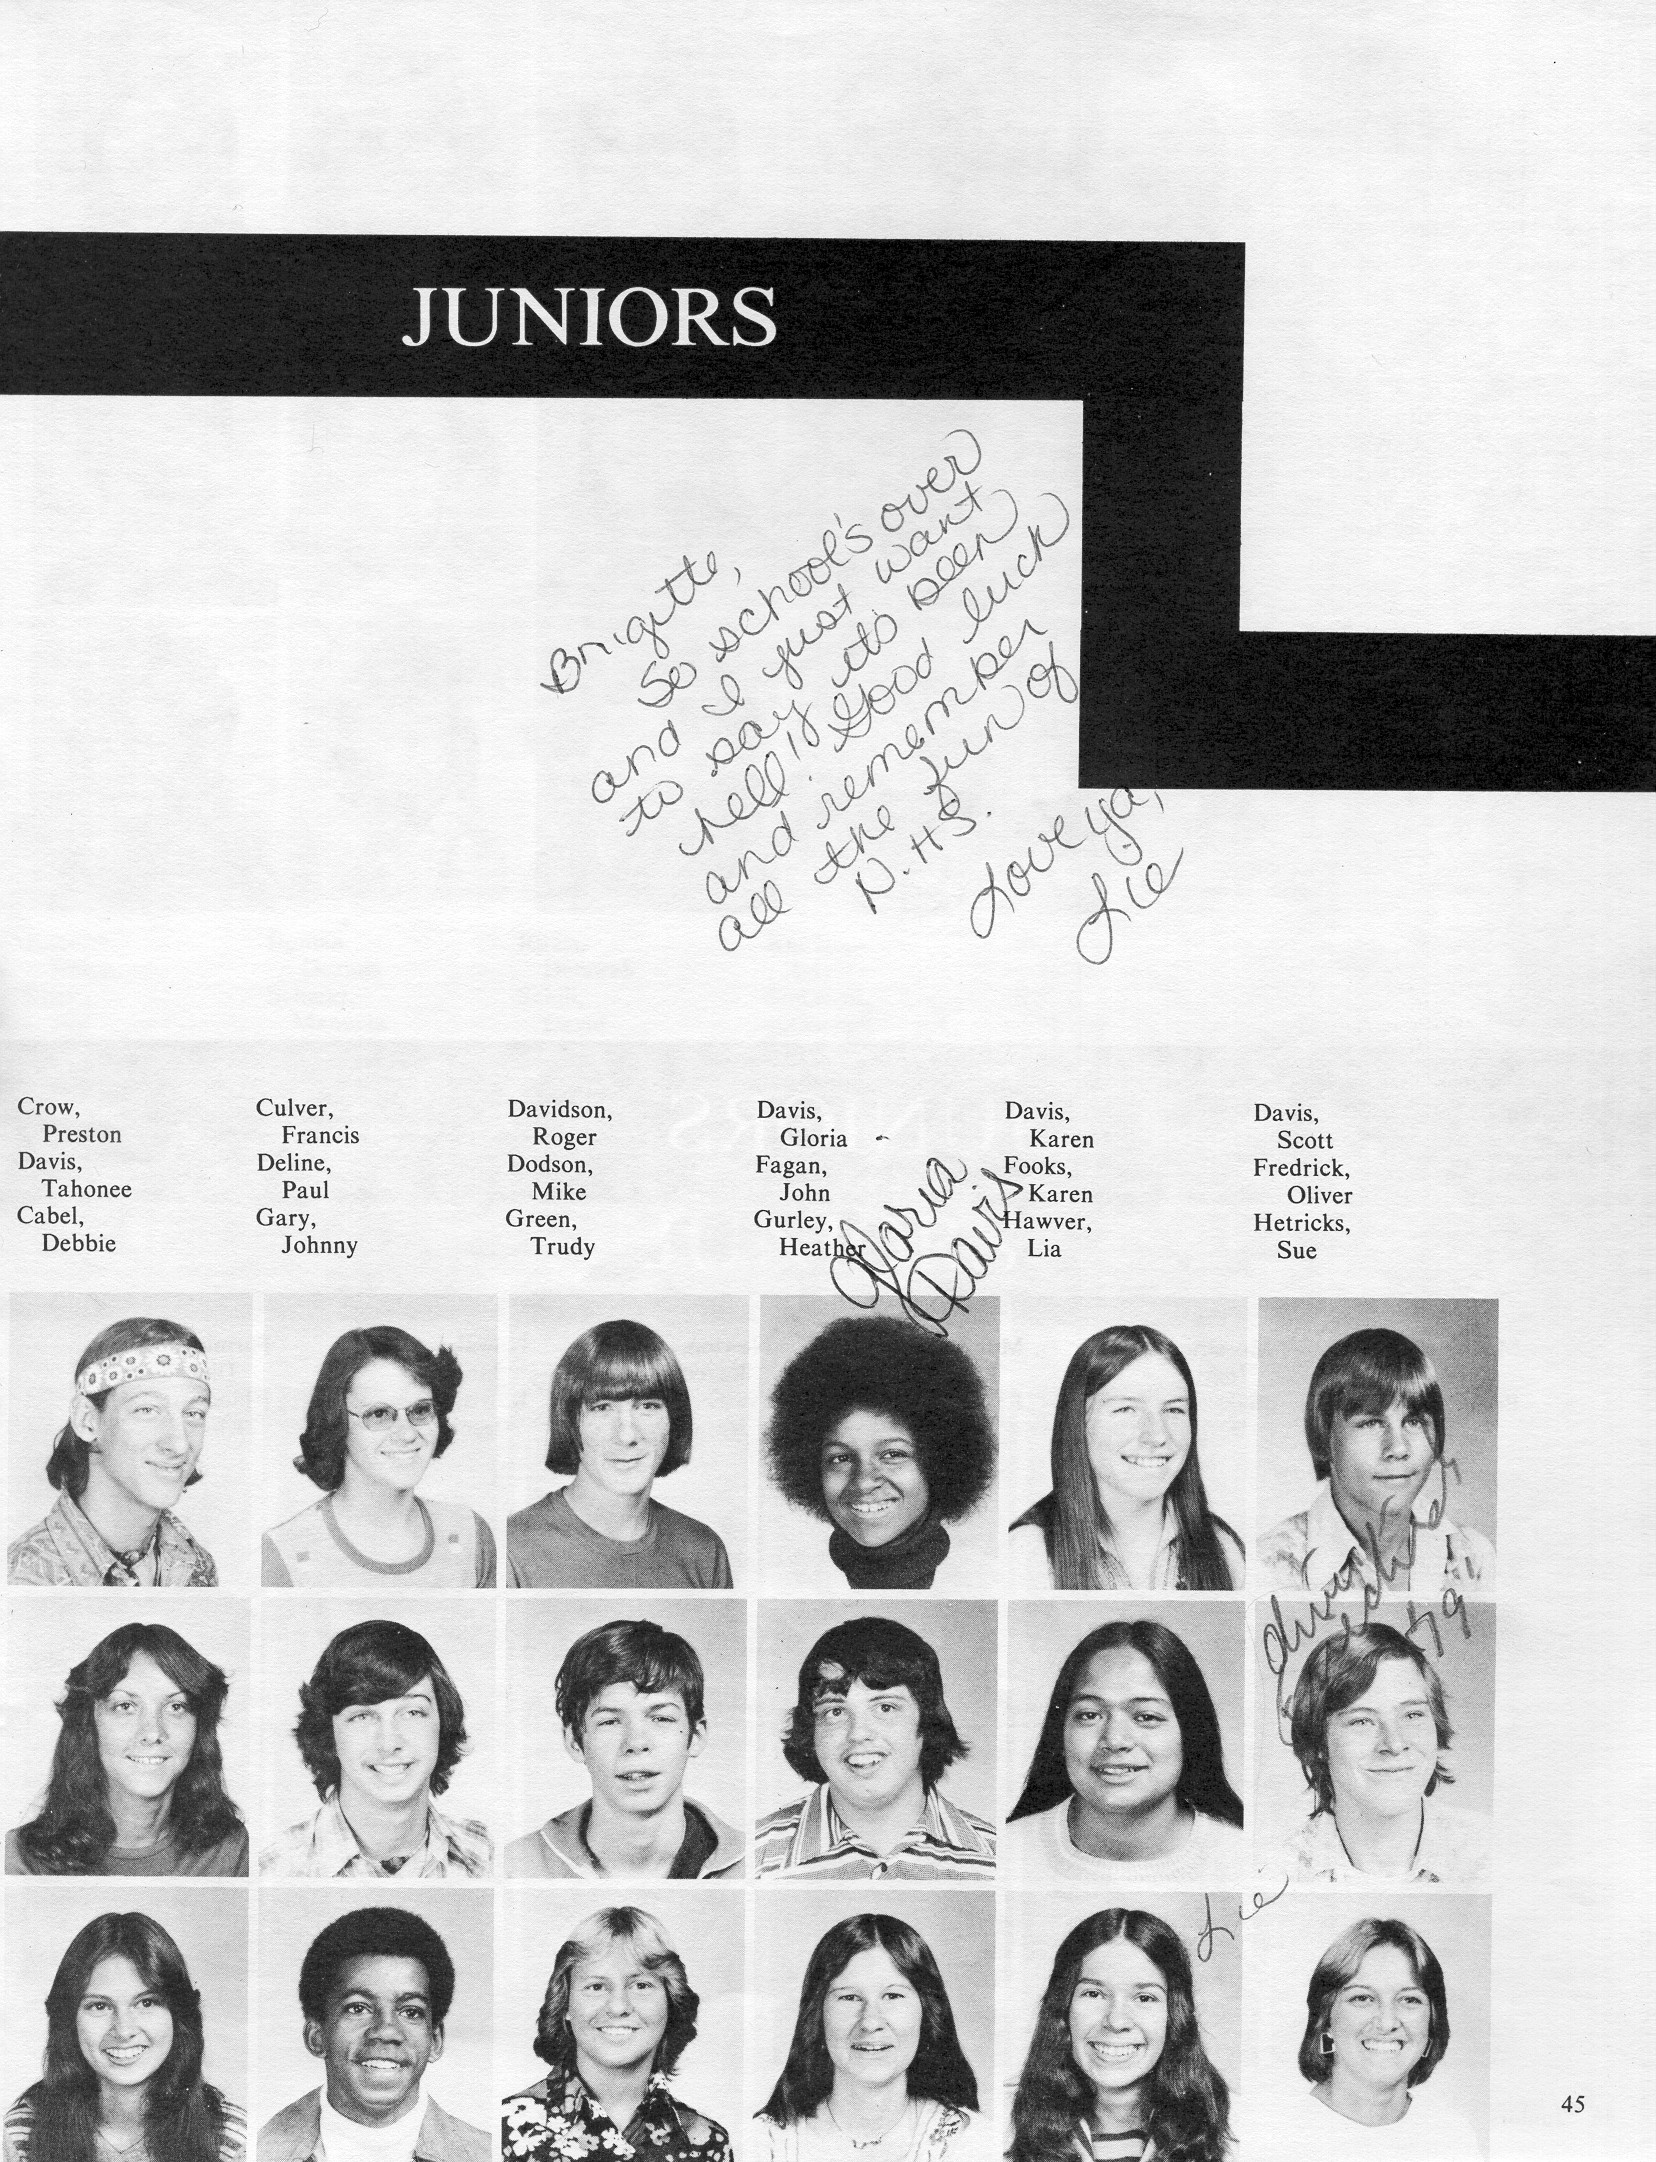 JUNIORS
Brigitte,
So school's over
and I just want
to say its been
hell! Good luck
and remember
all the fun of
N.H.S.
Love ya,
Lie
Crow,
Preston
Davis,
Tahonee
Cabel,
Debbie
Culver,
Francis
Deline,
Paul
Gary,
Johnny
Davidson,
Roger
Dodson,
Mike
Green,
Trudy
Davis,
Gloria
Fagan,
John
Gurley,
Heather
Davis,
Karen
Fooks,
Karen
Hawver,
Lia
Davis,
Scott
Fredrick,
Oliver
Hetricks,
Sue
Gloria
Davis
79
Lie
45